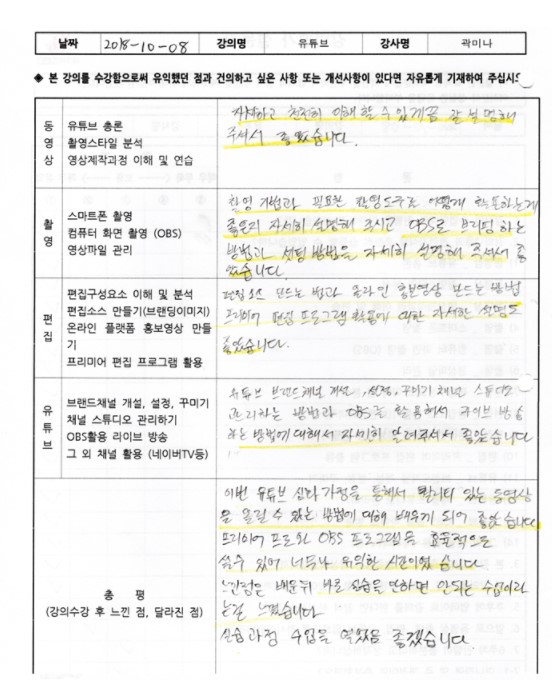 날짜 2018-10-08 강의명 유튜브 강사명 곽미나
◈ 본 강의를 수강함으로써 유익했던 점과 건의하고 싶은 사항 또는 개선사항이 있다면 자유롭게 기재하여 주십시오
동영상
유튜브 총론
촬영스타일 분석
영상제작과정 이해 및 연습
자세하고 천천히 이해 할 수 있게끔 잘 설명해
주셔서 좋았습니다.
촬영
스마트폰 촬영
컴퓨터 화면 촬영 (OBS)
영상파일 관리
촬영 기법과 필요한 촬영도구로 어떻게 활용하는게
좋은지 자세히 설명해 주시고 OBS로 브리핑 하는
방법과 셋팅 방법을 자세히 설명해 주셔서 좋
았습니다.
편집
편집구성요소 이해 및 분석
편집소스 만들기(브랜딩이미지)
온라인 플랫폼 홍보영상 만들
기
프리미어 편집 프로그램 활용
편집소스 만드는 법과 온라인 홍보영상 만드는 방법
프리미어 편집 프로그램 활용에 대한 자세한 설명도
좋았습니다.
유튜브
브랜드채널 개설, 설정, 꾸미기
채널 스튜디오 관리하기
OBS활용 라이브 방송
그 외 채널 활용 (네이버TV등)
유튜브 브랜드채널 개설, 설정, 꾸미기 채널 스튜디오
관리하는 방법과 OBS를 활용해서 라이브 방송
하는 방법에 대해서 자세히 알려주셔서 좋았습니다
총 평
(강의수강 후 느낀 점, 달라진 점)
이번 유튜브 심화과정을 통해서 퀄리티 있는 동영상
을 올릴 수 있는 방법에 대해 배우게 되어 좋았습니다
프리미어 프로와 OBS 프로그램을 효율적으로
쓸수 있어 너무나 유익한 시간이었습니다
느낀점은 배운뒤 바로 실습을 안하면 안되는 수업이라
는걸 느꼈습니다
실습과정 수업을 좋겠습니다